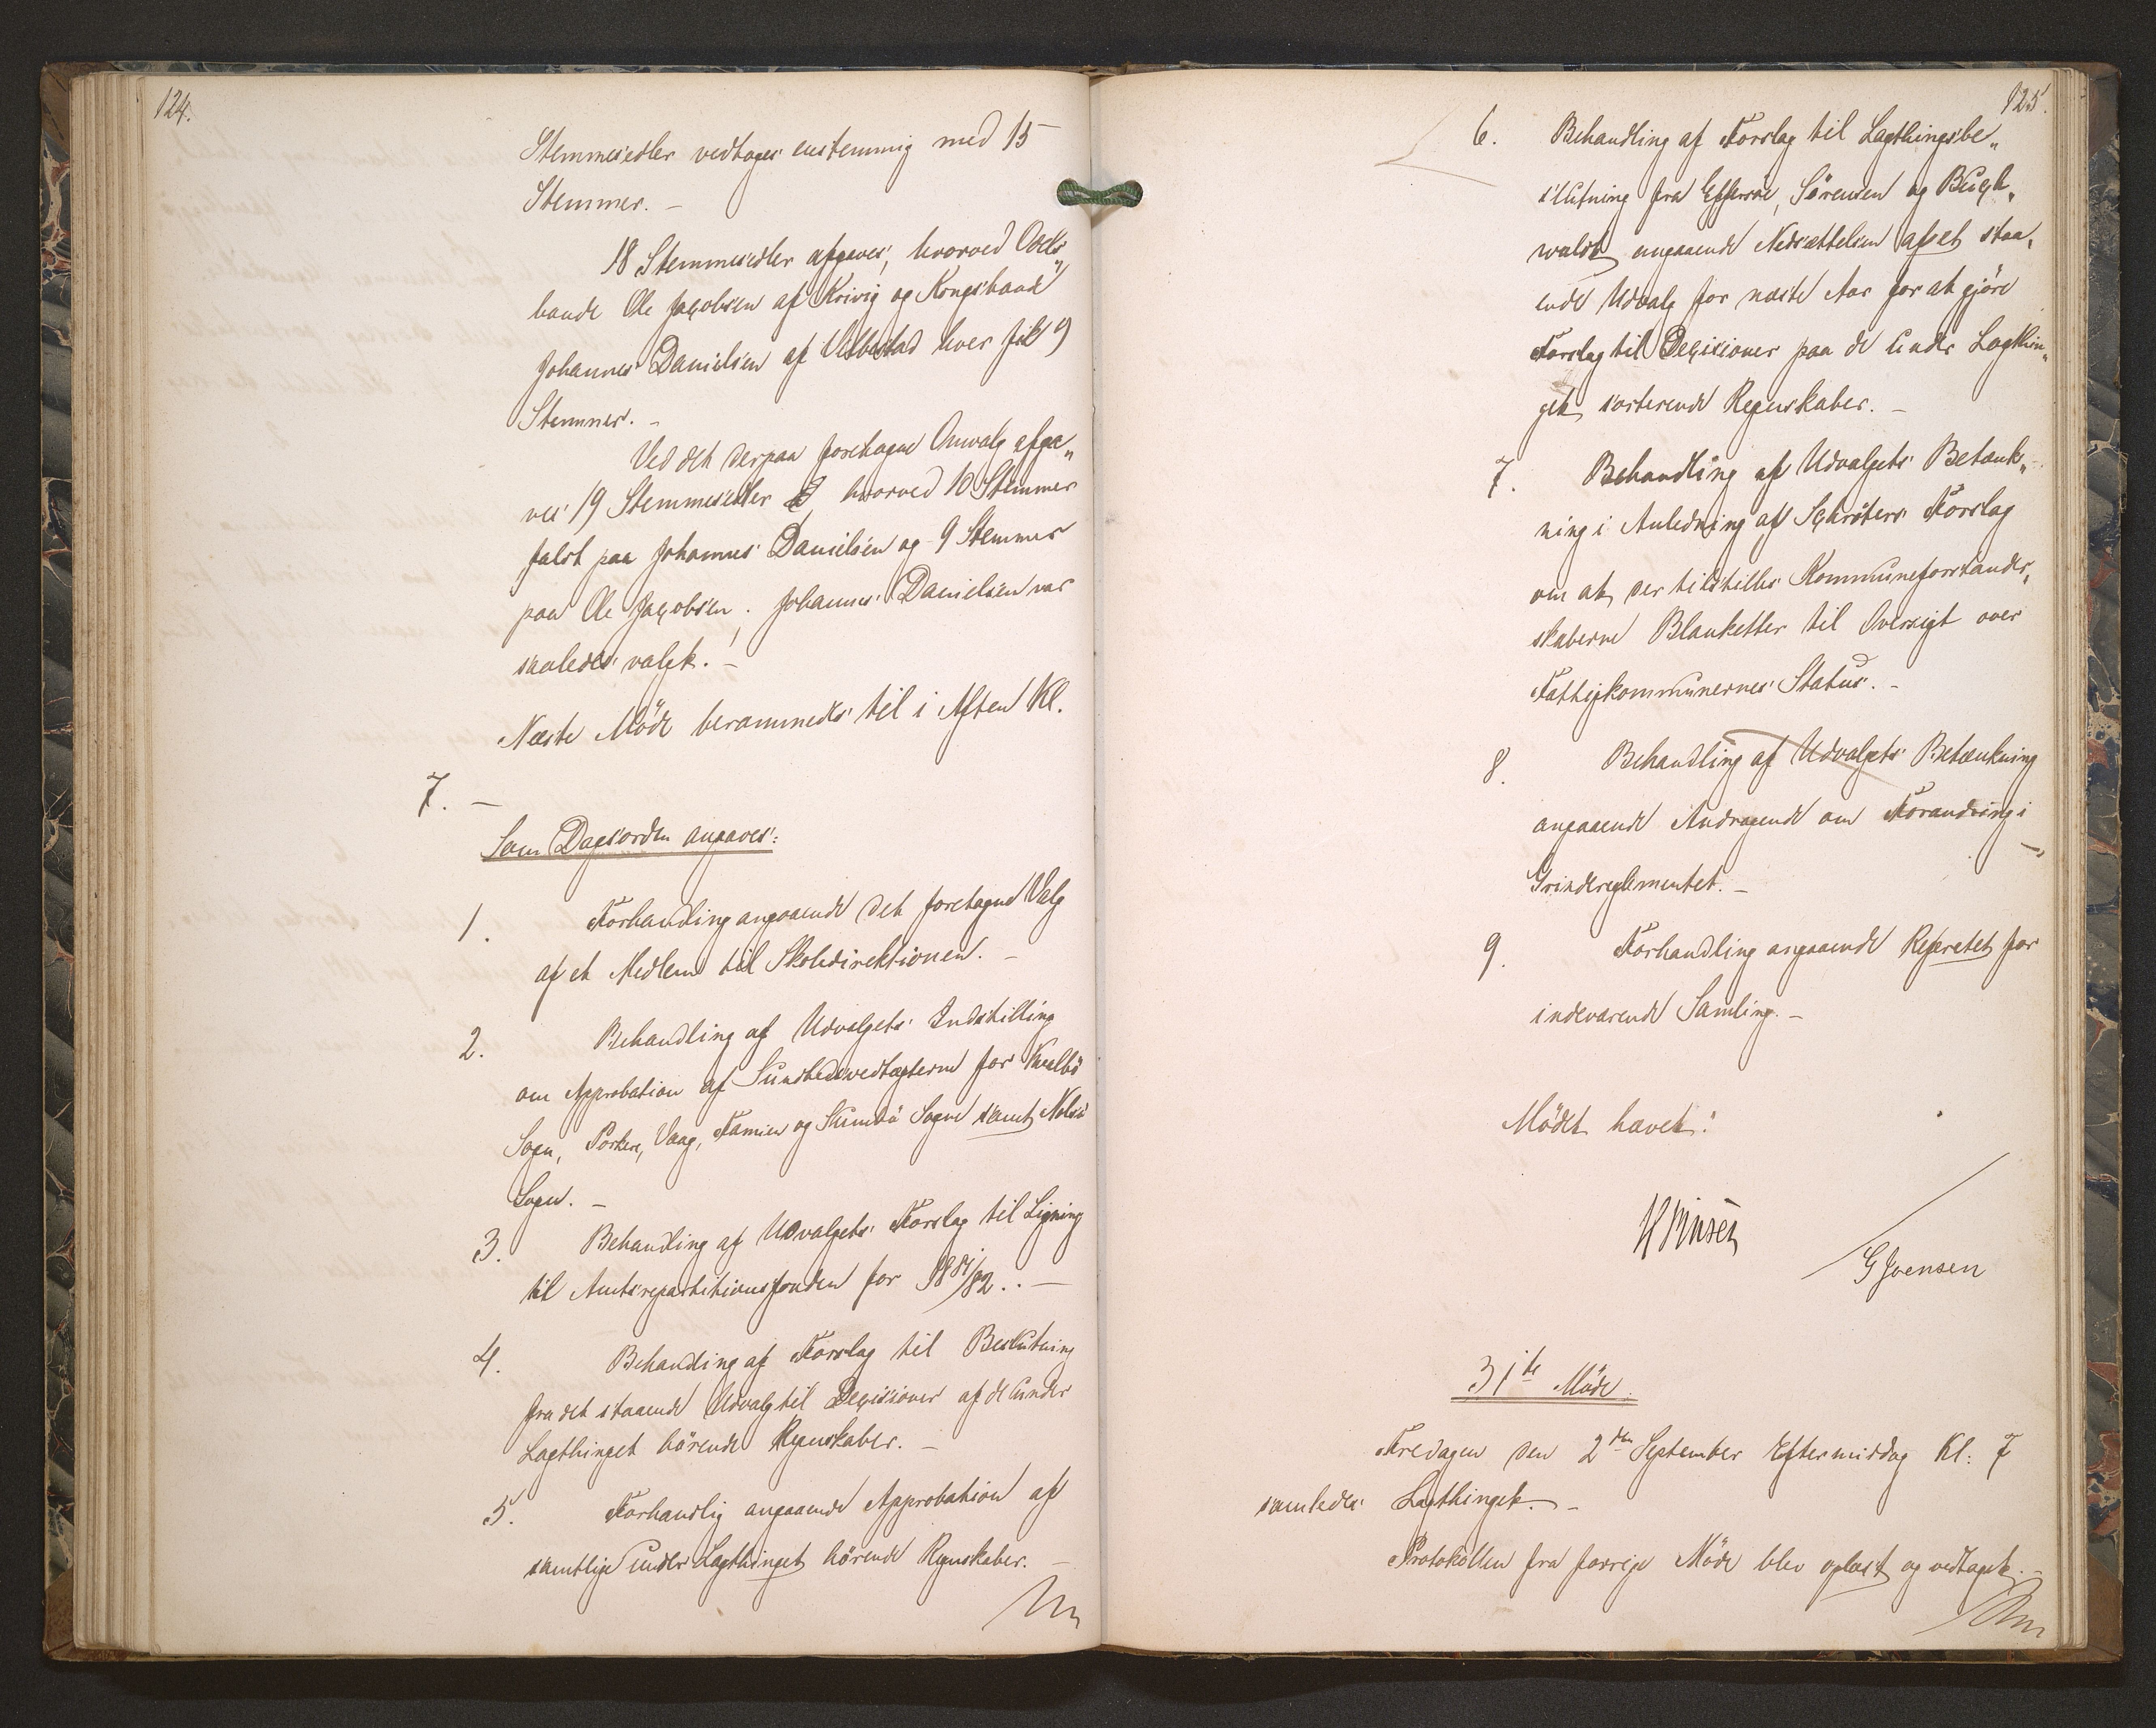 124.
Stemmesedler vedtoges eenstemmig med 15
Stemmer. –
18 Stemmesedler afgaves, hvorved Odels„
bonde Ole Jacobsen af Krivig og Kongsbonde
Johannes Danielsen af Velbestad hver fik 9
Stemmer. –
Ved det derpaa foretagne Omvalg afga„
ves 19 Stemmesedler, hvorved 10 Stemmer
faldt paa Johannes Danielsen og 9 Stemmer
paa Ole Jacobsen. Johannes Danielsen var
saaledes valgt. –
Næste Möde berammedes til i Aften Kl.
7. –
Som Dagsorden angaves:
1. Forhandling angaaende det foretagne Valg
af et Medlem til Skoledirektionen. –
2. Behandling af Udvalgets Indstilling
om Approbation af Sundhedsvedtægterne for Kvalbö
Sogn, Porkere, Vaag, Famien og Sumbö Sogne samt Nolsö
Sogn. –
3. Behandling af Udvalgets Forslag til Ligning
til Amtsrepartitionsfonden for 1881/82. . –
4. Behandling af Forslag til Beslutning
fra det staaende Udvalg til Decisioner af de under
Lagthinget hörende Regnskaber. –
5. Forhandlig angaaende Approbation af
samtlige under Lagthinget hörende Regnskaber. –
125.
6. Behandling af Forslag til Lagthingsbe„
slutning fra Effersöe, Sörensen og Bugh„
waldt angaaende Nedsættelsen af et staa„
ende Udvalg for næste Aar for at gjöre
Forslag til Decisioner paa de under Lagthin„
get sorterende Regnskaber. –
7. Behandling af Udvalgets Betænk„
ning i Anledning af Schröters Forslag
om at der tilstilles Kommuneforstander„
skaberne Blanketter til Oversigt over
Fattigkommunernes Status. –
8. Behandling af Udvalgets Betænkning
angaaende Andragende om Forandring i
Grindereglementet. –
9. Forhandling angaaende Referatet for
indeværende Samling. –
Mödet hævet.
H Finsen
G Joensen
31te Möde.
Fredagen den 2den September Eftermiddag Kl: 7
samledes Lagthinget. –
Protokollen fra forrige Möde blev oplæst og vedtaget. –